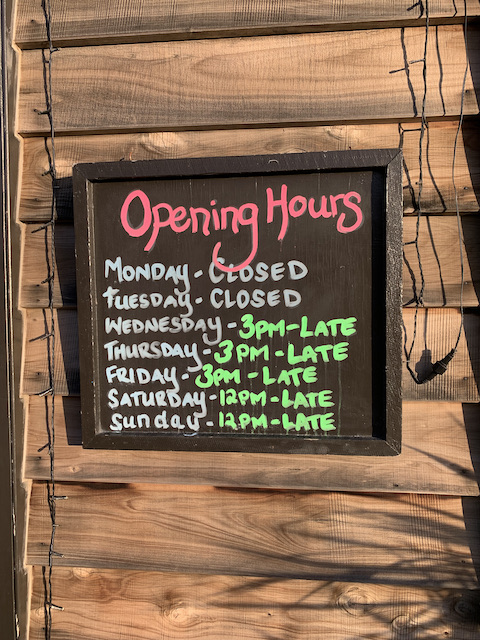 Opening Hours
MONDAY - CLOSED
tUESDAY - CLOSED
WEDNESDAY - 3PM - LATE
THURSDAY - 3PM - LATE
FRIDAY - 3PM - LATE
SATURDAY - 12PM - LATE
sunday - 12PM - LATE